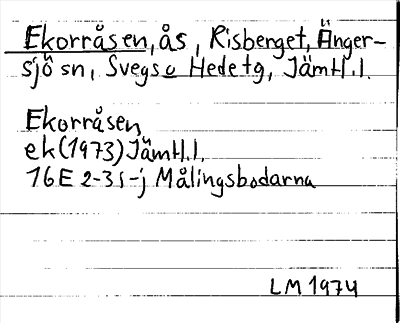 Ekorråsen, ås, Risberget, Änger-
sjö sn, Svegs o Hede tg, Jämtl.l.
Ekorråsen
ek (1973) Jämtl.l.
16E 2-3 i-j Målingsbodarna
LM 1974